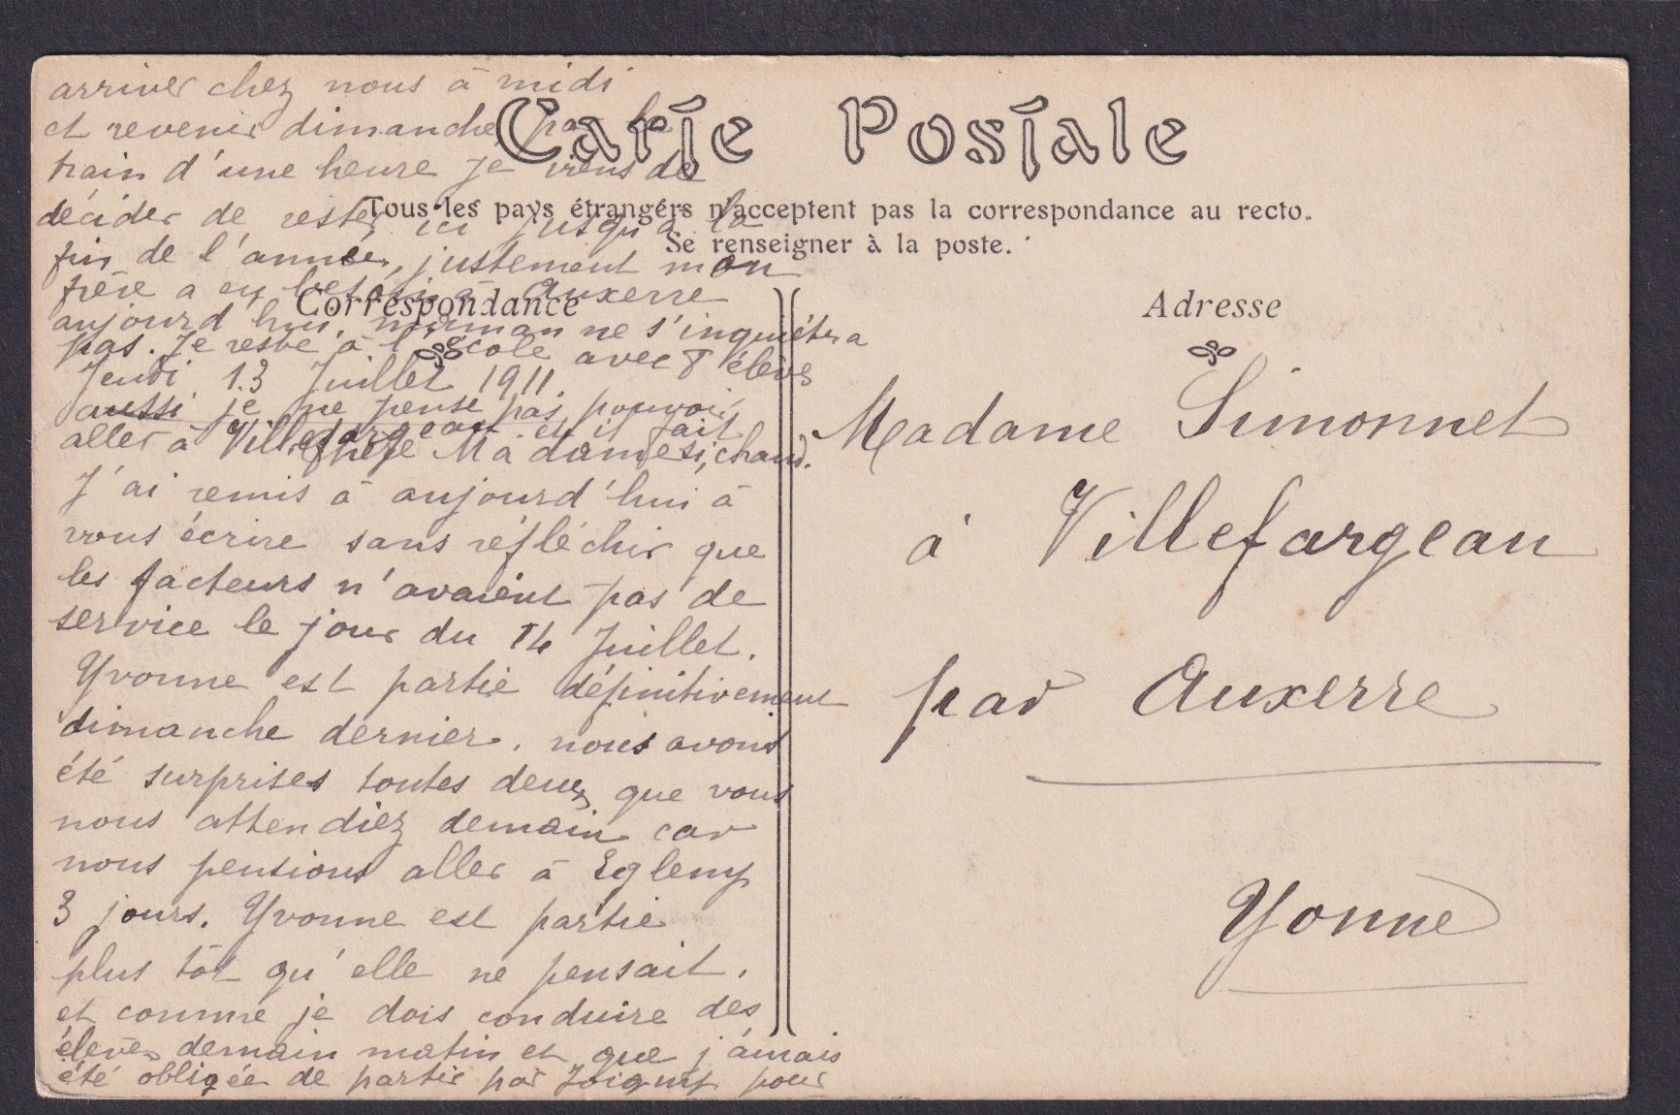 arriver chez nous à midi
et revenir dimanche par le
train d'une heure je viens de
décider de rester ici jusqu'à la
fin de l'année, justement mon
frère a eu besoin à Auxerre
aujourd'hui, maman ne s'inquiétra
pas. Je reste à l'école avec 8 élèves
Jeudi 13 Juillet 1911.
aussi je ne pense pas pouvoir
aller à Villefargeau et il fait si chaud.
Chère Madame,
J'ai remis à aujourd'hui à
vous écrire sans réfléchir que
les facteurs n'avaient pas de
service le jour du 14 Juillet.
Yvonne est partie définitivement
dimanche dernier. nous avons
été surprises toutes deux que vous
nous attendiez demain car
nous pensions aller à Egleny
3 jours. Yvonne est partie
plus tôt qu'elle ne pensait.
et comme je dois conduire des
élèves demain matin et que j'amais
été obligée de partir par Joigny pour
Carte Postale
Tous les pays étrangers n'acceptent pas la correspondance au recto.
Se renseigner à la poste.
Correspondance
Adresse
Madame Simonnet
à Villefargeau
par Auxerre
Yonne